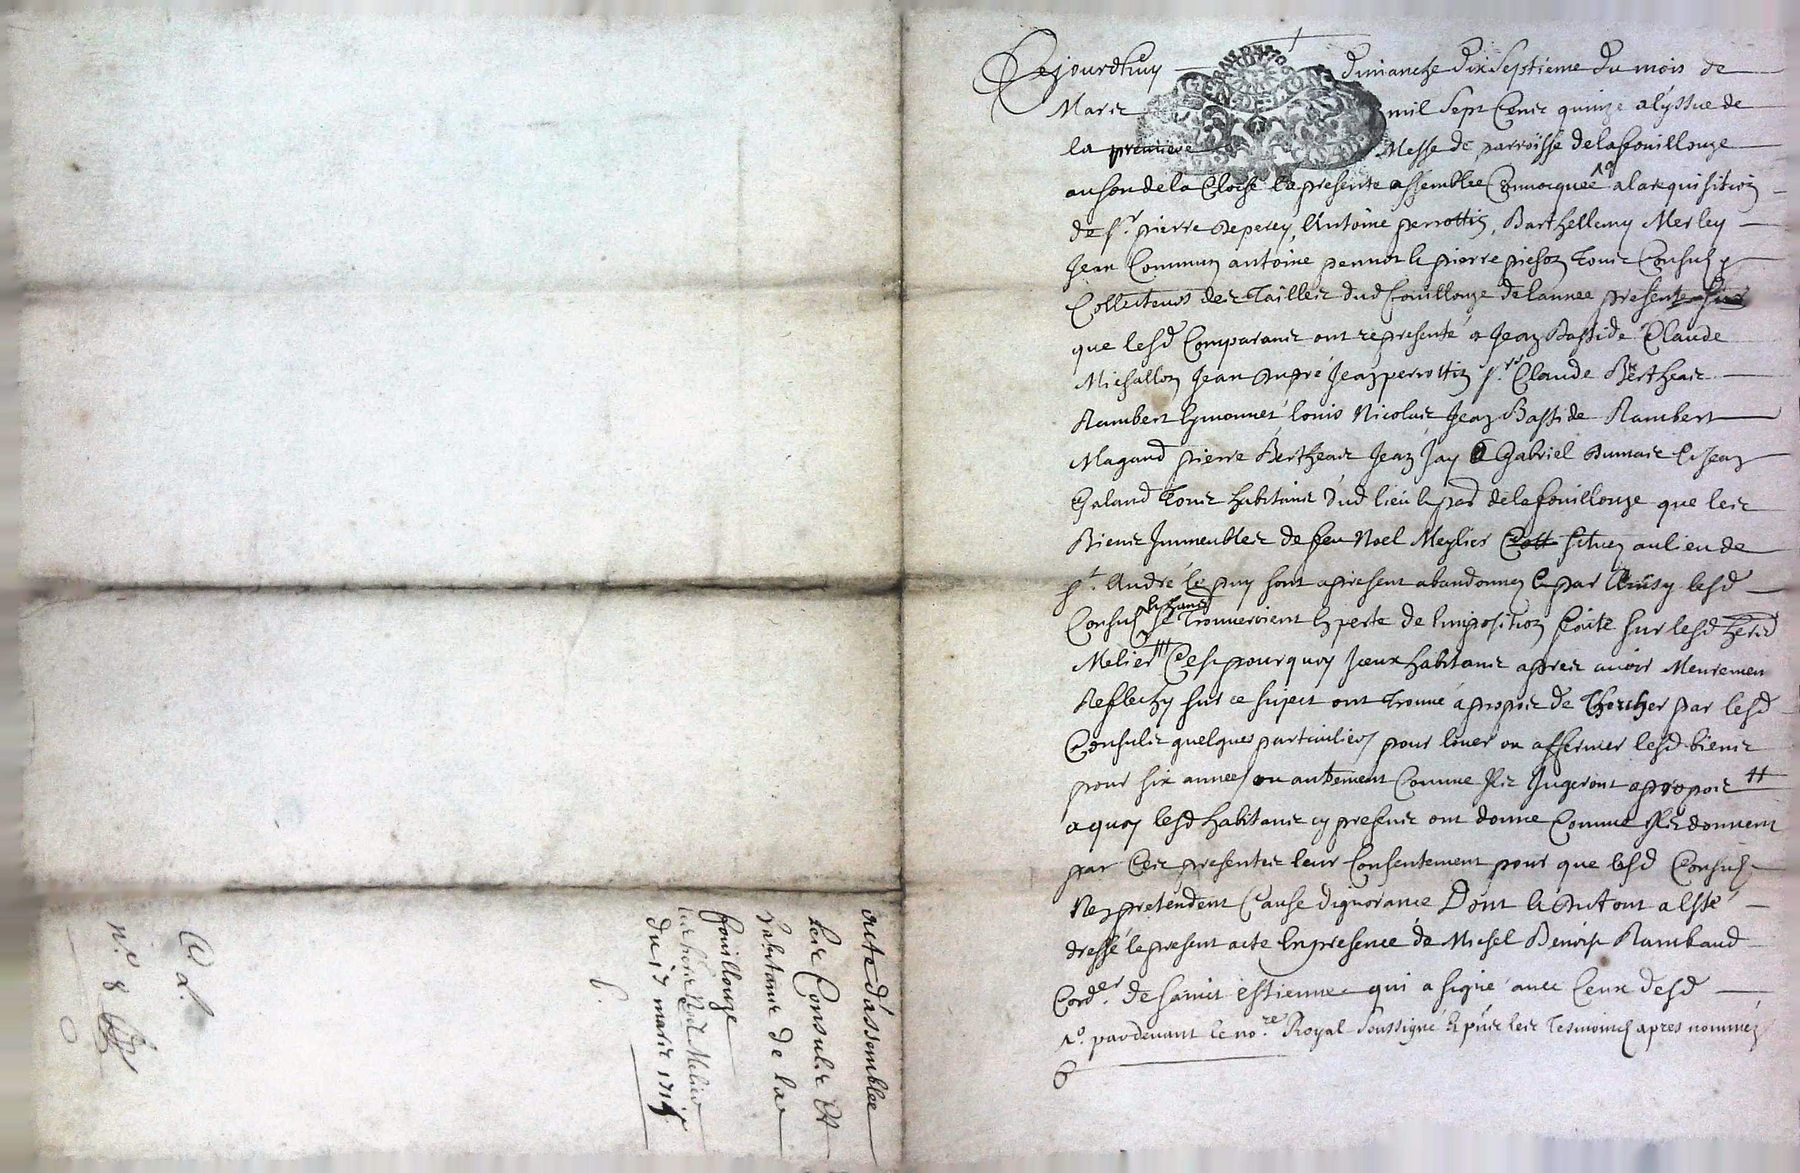 Cejourdhuy dimanche dix septieme du mois de
Mars mil sept Cens quinze alyssue de
la premiere Messe de parroisse delafouillouze
au son de la Cloche la presente assemblee Convocquee 1º alarequisition
de sr. pierre Antoine perrottin, Barthellemy Merley
Jean Commun antoine pierre pichon tous Consuls &
Collecteurs des Tailles dud fouillouze de lannee presente
que lesd Comparans ont represente a Jean Bastide Claude
Michallon Jean dupré Jean perrottin sr. Claude Bertheas
Rambert louis Nicolas Jean Bastide Rambert
Magand pierre Bertheas Jean Jay Gabriel Dumas & Jean
Galand tous habitans dud lieu & par delafouillouze que les
Biens Immeubles de feu Noel Meylier situez au lieu de
st. André le puy sont apresent abandonnez & par lesd
Consuls se Trouveroient En perte de limposition faite sur lesd
Melier Cest pourquoy Iceux habitans apres avoir Meuremen
Reflechy sur ce suject ont trouvé apropos de Chercher par lesd
Consuls quelques particuliers pour louer ou affermer lesd biens
pour six annees ou autrement Comme Ils Jugeront apropos
a quoy lesd habitans cy presens ont donne Comme Ils donnent
par Ces presentes leur Consentement pour que lesd Consuls
Nen pretendent Cause dignorance Dont
dressé le present acte En presence de Michel Benoist Rambaud
Corder. de sainct Estienne qui a signé avec Ceux desd
1º. pardevant le nore. Royal soussigné & les tesmoins apres nommez
acte dassemblee
des Consuls Et
habitans de la
fouillouze
Noel Melier
du 17 mars 1715
n.º 8